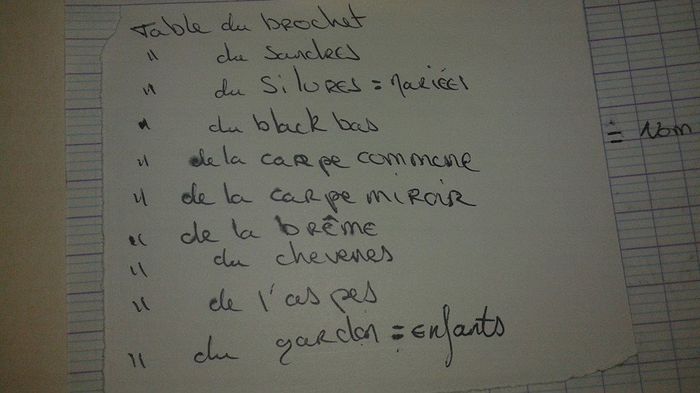 Table du brochet
" du sandres
" du SiLURES = Mariées
" du black bas
" de la carpe commune
" de la carpe miroir
" de la brême
" du chevenes
" de l'aspes
" du gardon = enfants
= Nom